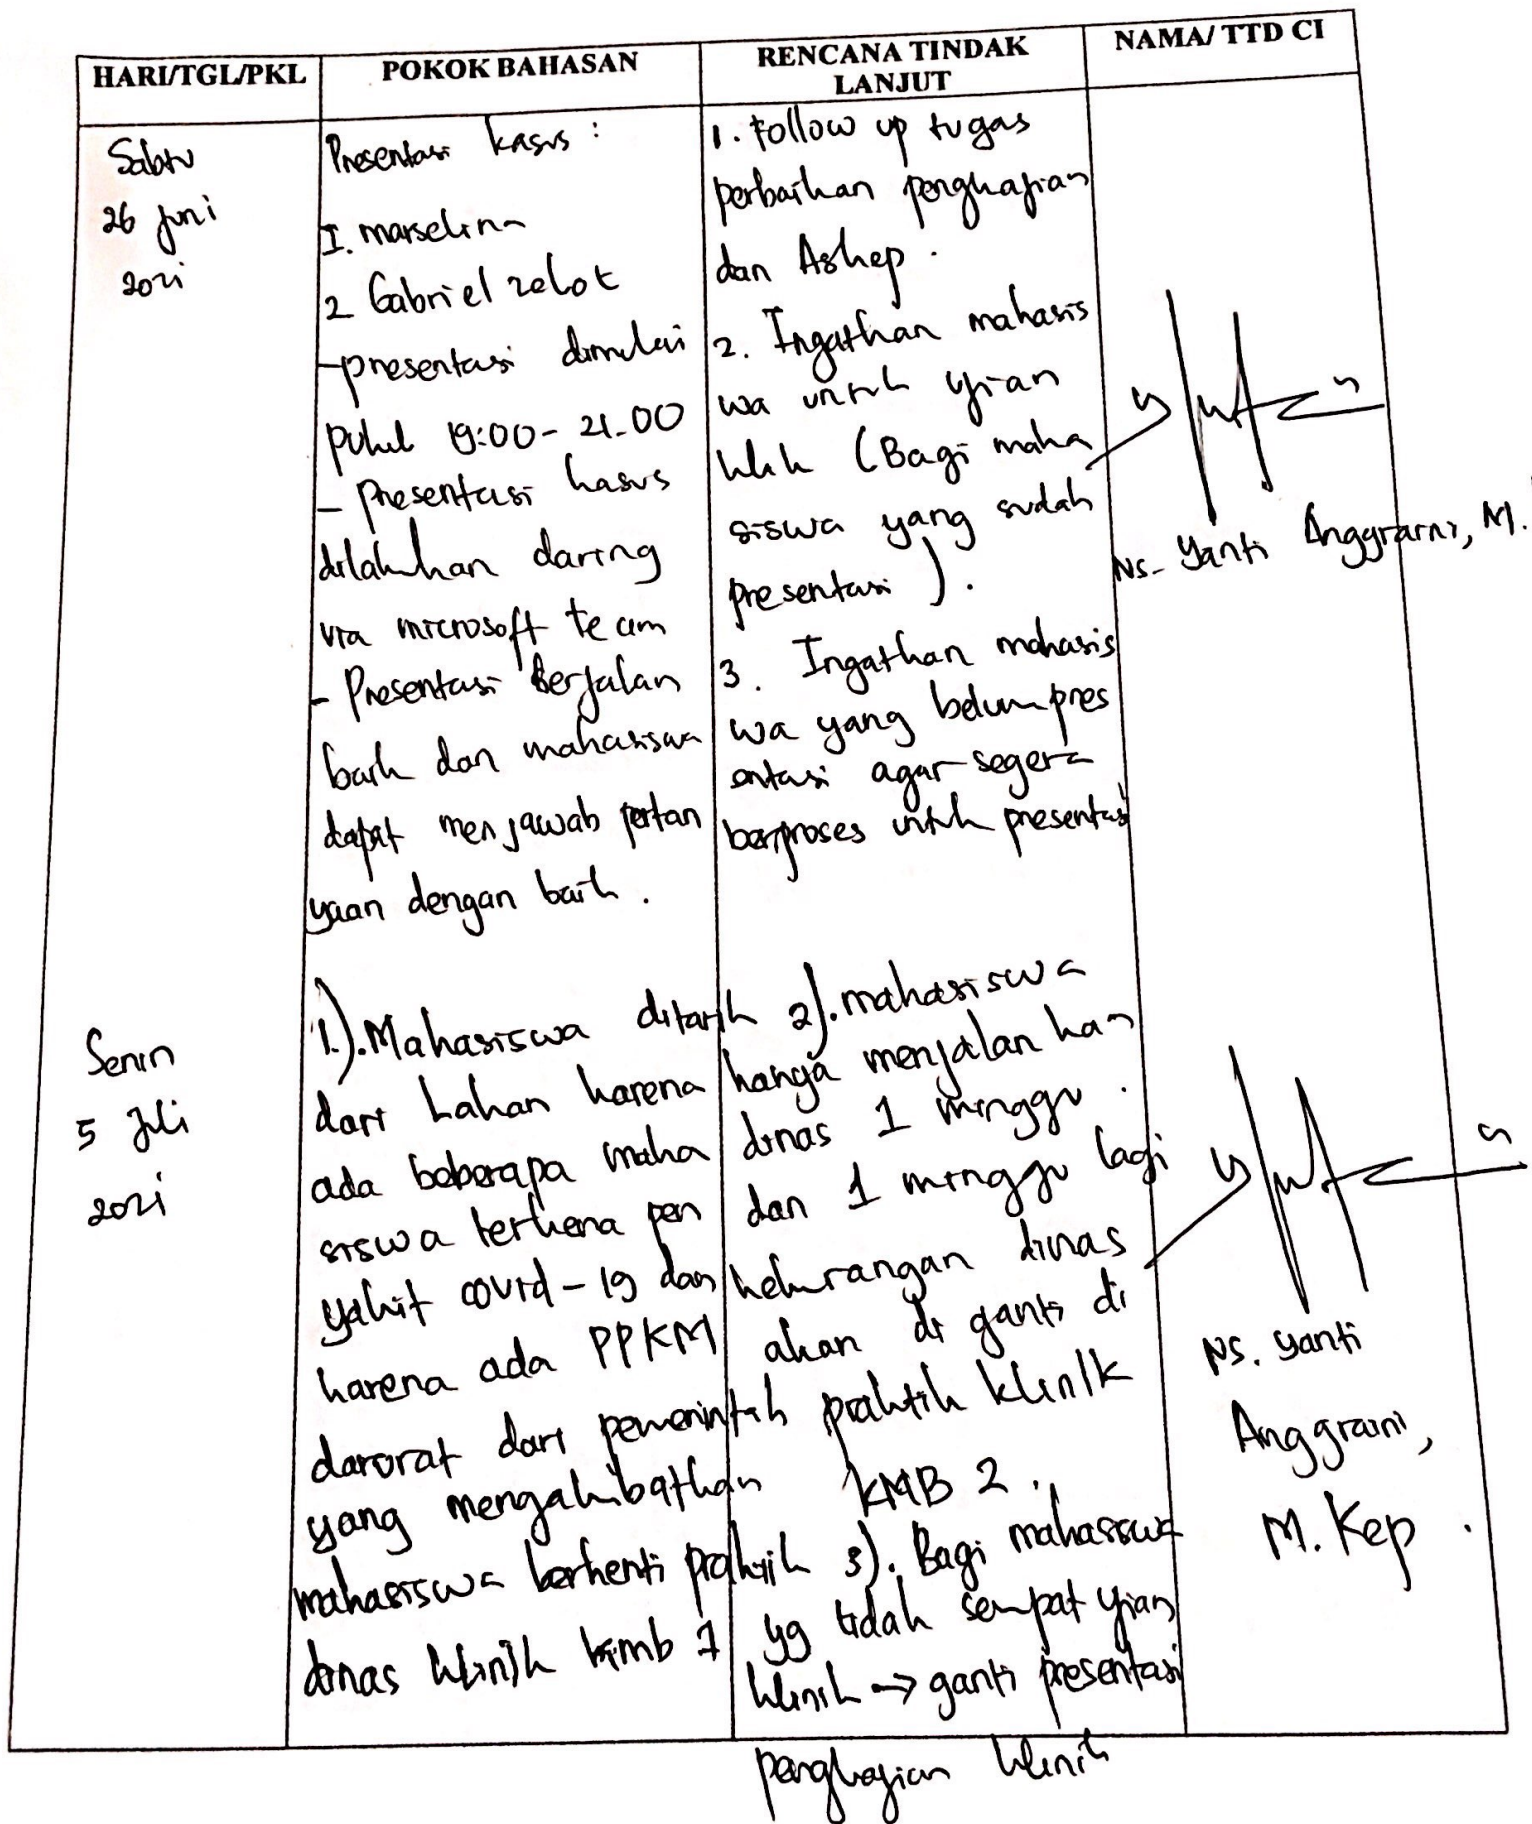 HARI/TGL/PKL
POKOK BAHASAN
RENCANA TINDAK
LANJUT
NAMA/ TTD CI
Sabtu
26 Juni
2021
Presentasi kasus :
1. marselina
2 Gabriel
-presentasi dimulai
pukul 19:00 - 21.00
- Presentasi kasus
dilakukan daring
via microsoft team
- Presentasi Berjalan
baik dan mahasiswa
dapat menjawab pertan
yaan dengan baik .
1. Follow up tugas
perbaikan pengkajian
dan Askep .
2. Ingatkan mahasis
wa untuk ujian
klik (Bagi maha
siswa yang sudah
presentasi ) .
3. Ingatkan mahasis
wa yang belum pres
entasi agar segera
berproses untuk presentasi
Ns. Yanti Anggraini, M.
Senin
5 Juli
2021
1.). Mahasiswa ditarik
dari Lahan karena
ada beberapa maha
siswa terkena pen
yakit covid-19 dan
karena ada PPKM
darurat dari pemerintah
yang mengakibatkan
mahasiswa berhenti praktik
dinas klinik kmb 1
2). mahasiswa
hanya menjalan kan
dinas 1 minggu .
dan 1 minggu lagi
kekurangan dinas
akan di ganti di
praktik klinik
KMB 2 .
3). Bagi mahasiswa
yg tidak sempat ujian
klinik → ganti presentasi
pengkajian klinik
Ns. Yanti
Anggraini,
M. Kep .